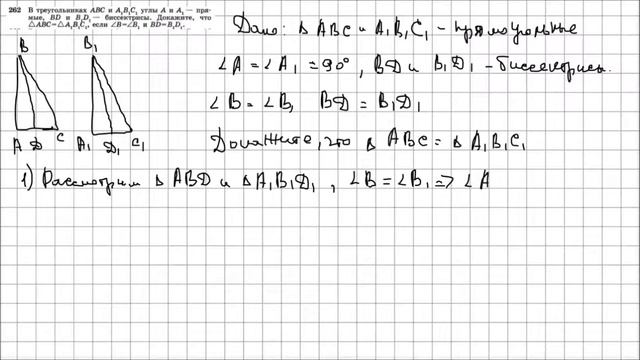 262 В треугольниках ABC и A₁B₁C₁ углы A и A₁ — пря-
мые, BD и B₁D₁ — биссектрисы. Докажите, что
△ABC=△A₁B₁C₁, если ∠B=∠B₁ и BD=B₁D₁.
Дано: △ ABC и A₁B₁C₁ - прямоугольные
∠A = ∠A₁ = 90°, BD и B₁D₁ - биссектрисы.
∠B = ∠B, BD = B₁D₁
Докажите, что △ ABC = △ A₁B₁C₁
B B₁
A D C A₁ D₁ C₁
1) Рассмотрим △ ABD и △ A₁B₁D₁, ∠B = ∠B₁ => ∠A